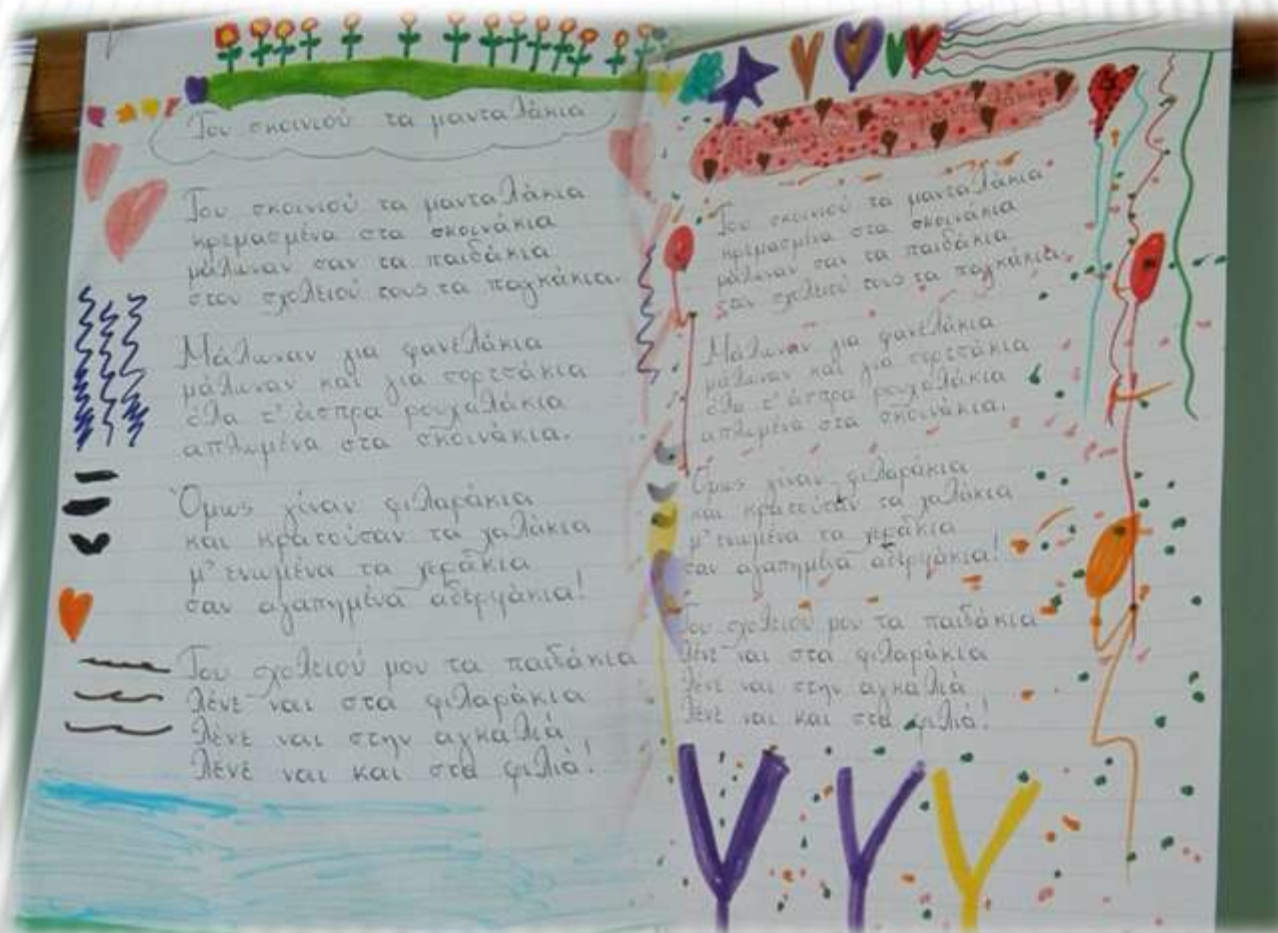 Του σκοινιού τα μανταλάκια
Του σκοινιού τα μανταλάκια
κρεμασμένα στα σκοινάκια
μάλωναν σαν τα παιδάκια
στου σχολειού τους τα παγκάκια.
Μάλωναν για φανελάκια
μάλωναν και για σορτσάκια
όλα τ' άσπρα ρουχαλάκια
απλωμένα στα σκοινάκια.
Όμως γίναν φιλαράκια
και κρατούσαν τα γαλάκια
μ' ενωμένα τα χεράκια
σαν αγαπημένα αδερφάκια!
Του σχολειού μου τα παιδάκια
λένε ναι στα φιλαράκια
λένε ναι στην αγκαλιά
λένε ναι και στα φιλιά!
Του σκοινιού τα μανταλάκια
κρεμασμένα στα σκοινάκια
μάλωναν σαν τα παιδάκια
στου σχολειού τους τα παγκάκια.
Μάλωναν για φανελάκια
μάλωναν και για σορτσάκια
όλα τ' άσπρα ρουχαλάκια
απλωμένα στα σκοινάκια.
Όμως γίναν φιλαράκια
και κρατούσαν τα γαλάκια
μ' ενωμένα τα χεράκια
σαν αγαπημένα αδερφάκια!
Του σχολειού μου τα παιδάκια
λένε ναι στα φιλαράκια
λένε ναι στην αγκαλιά
λένε ναι και στα φιλιά!